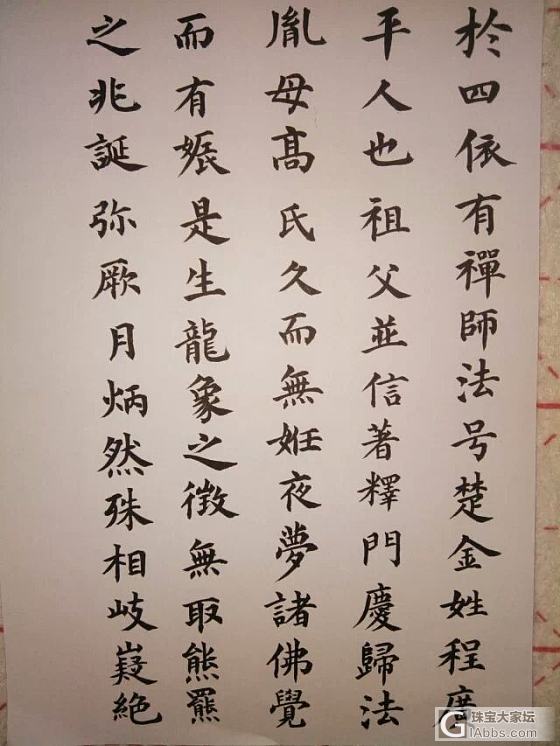 扵四依有禪師法号楚金姓程廣
平人也祖父並信著釋門慶歸法
胤母髙氏久而無姙夜夢諸佛覺
而有娠是生龍象之徵無取熊羆
之兆誕弥厥月炳然殊相岐嶷絶
珠宝大家坛
GIAbbs.com